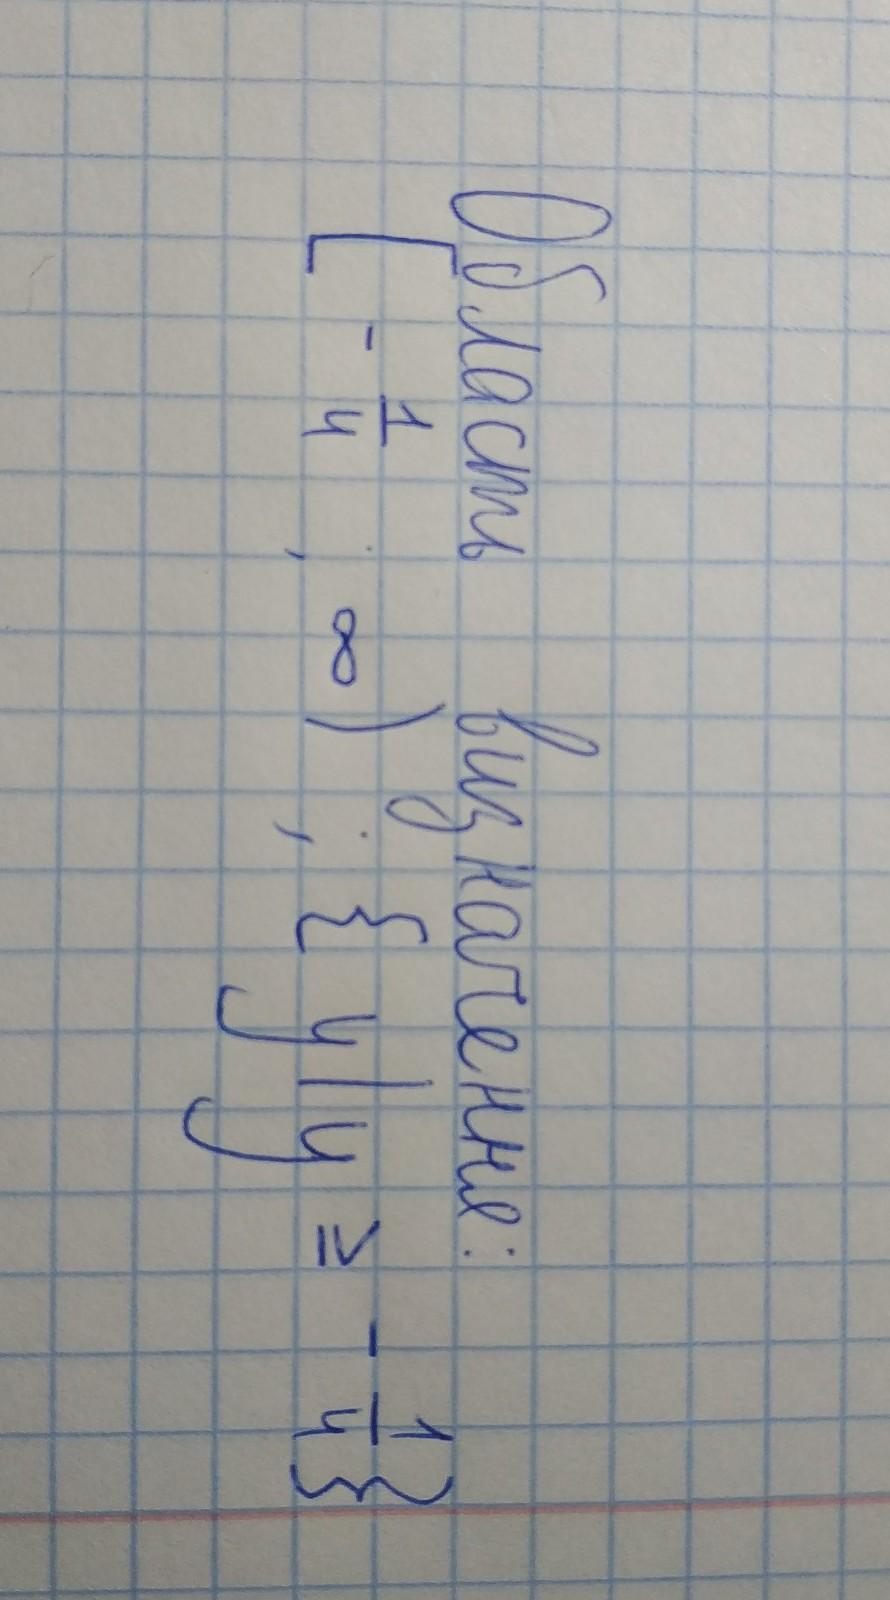 Область визначення:
[ - 1/4 ; ∞ ) ; { y | y ≥ - 1/4 }